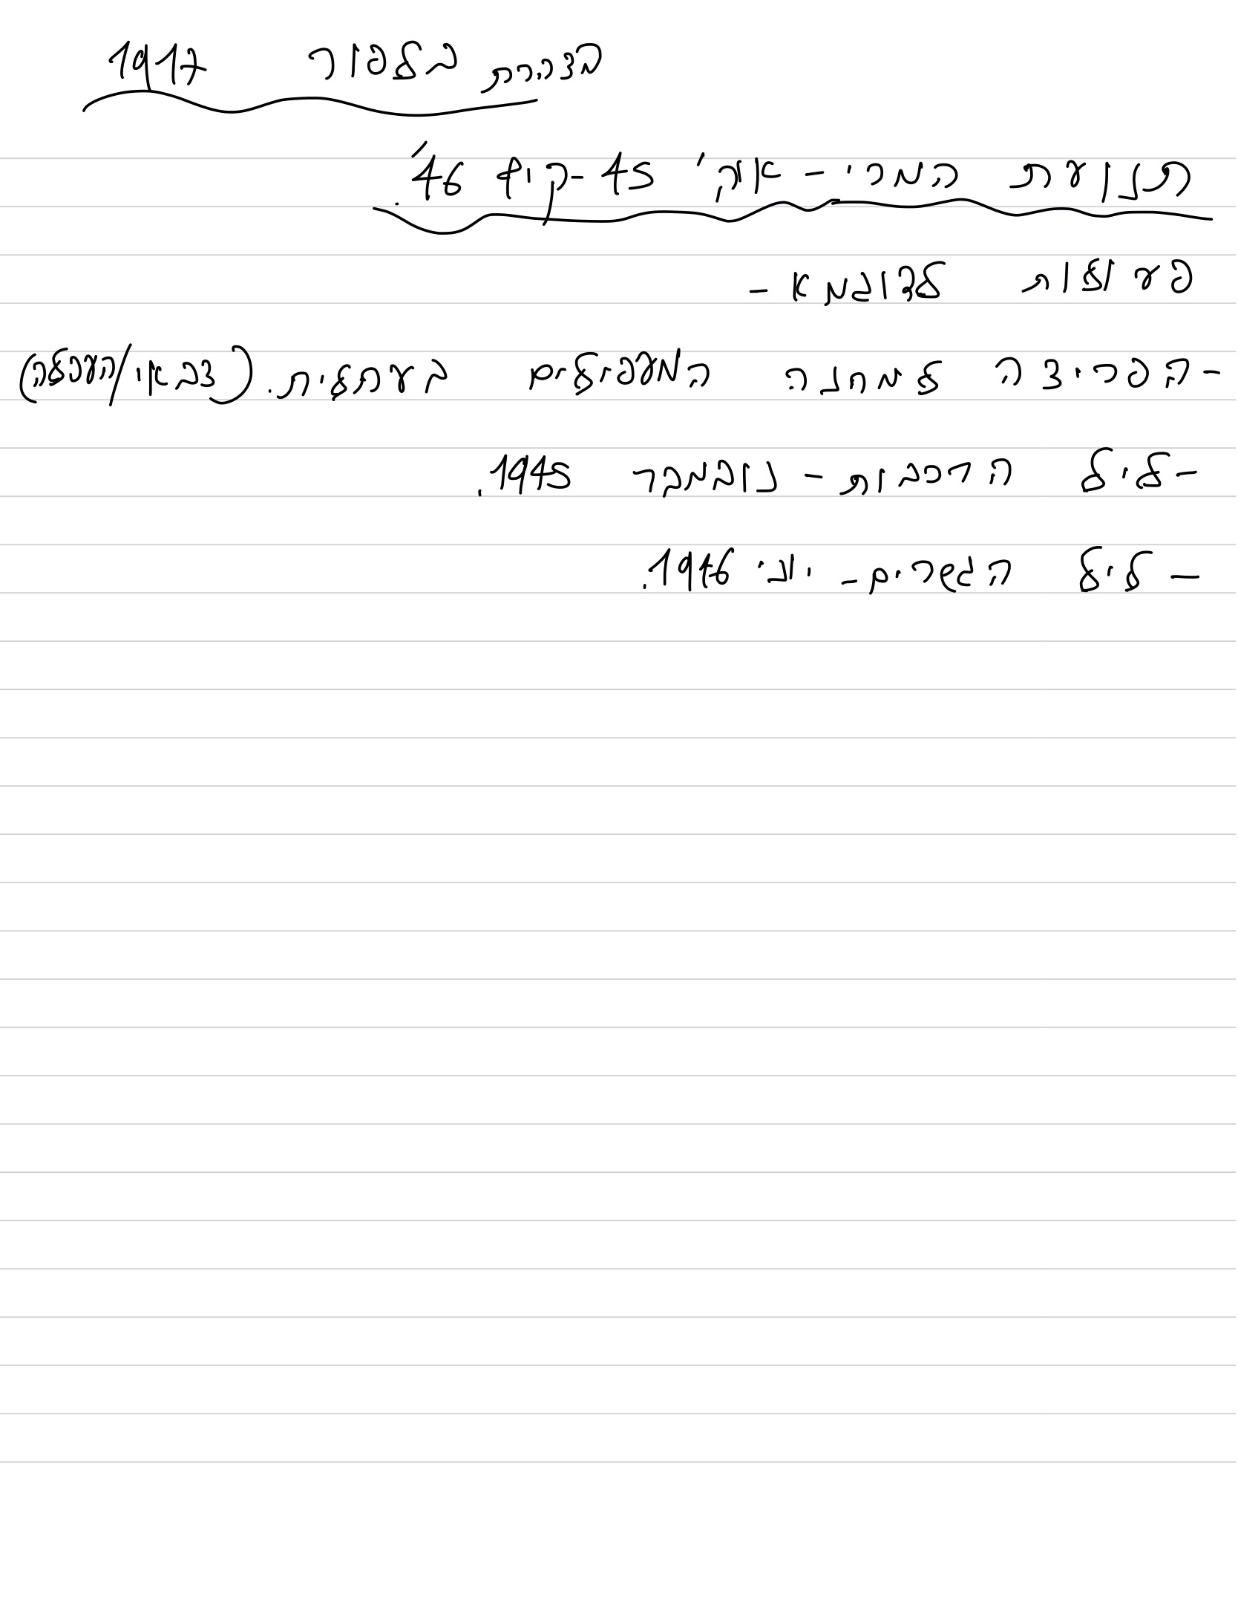 הצהרת בלפור 1917
תנועת המרי - אוק' 45 - קיץ 46'.
פעולות לדוגמא -
- הפריצה למחנה המעפילים בעתלית. (צבאי/העפלה)
- ליל הרכבות - נובמבר 1945.
- ליל הגשרים - יוני 1946.